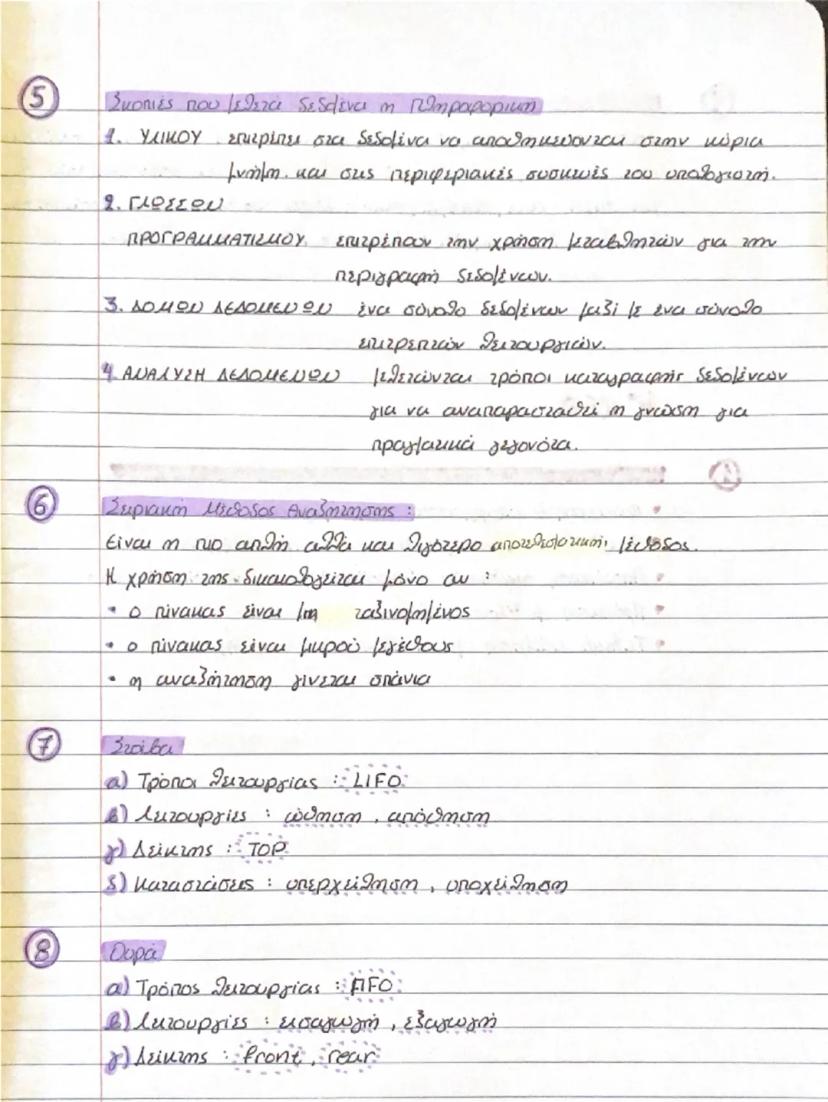 5 Σκοπιές που μελετά δεδομένα η Πληροφορική
1. ΥΛΙΚΟΥ επιτρέπει στα δεδομένα να αποθηκεύονται στην κύρια
μνήμη και στις περιφερειακές συσκευές του υπολογιστή.
2. ΓΛΩΣΣΩΝ
ΠΡΟΓΡΑΜΜΑΤΙΣΜΟΥ επιτρέπουν την χρήση μεταβλητών για την
περιγραφή δεδομένων.
3. ΔΟΜΩΝ ΔΕΔΟΜΕΝΩΝ ένα σύνολο δεδομένων μαζί με ένα σύνολο
επιτρεπτών λειτουργιών.
4. ΑΝΑΛΥΣΗ ΔΕΔΟΜΕΝΩΝ μελετώνται τρόποι καταγραφής δεδομένων
για να αναπαρασταθεί η γνώση για
πραγματικά γεγονότα.
6 Σειριακή Μέθοδος Αναζήτησης :
Είναι η πιο απλή αλλά και λιγότερο αποτελεσματική μέθοδος.
Η χρήση της δικαιολογείται μόνο αν :
• ο πίνακας είναι μη ταξινομημένος
• ο πίνακας είναι μικρού μεγέθους
• η αναζήτηση γίνεται σπάνια
7 Στοίβα
α) Τρόποι λειτουργίας : LIFO
β) Λειτουργίες : ώθηση , απώθηση
γ) Δείκτης : TOP
δ) Καταστάσεις : υπερχείληση , υποχείληση
8 Ουρά
α) Τρόπος λειτουργίας : FIFO
β) Λειτουργίες : εισαγωγή , εξαγωγή
γ) Δείκτης : front , rear